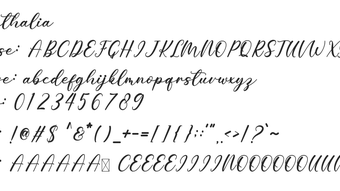 thalia
se: ABCDEFGHIJKLMNOPQRSTUVWX
e: abcdefghijklmnopqrstuvwxyz
: 0123456789
!@#$ ^&*()_+-=[]{}::'",.<>|?`~
AAAAAA CEEEEIIIINOOOOOUUU